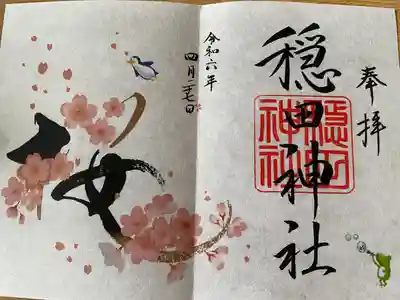 奉拝
穏田神社
隠田
神社
令和六年
四月二十七日
桜